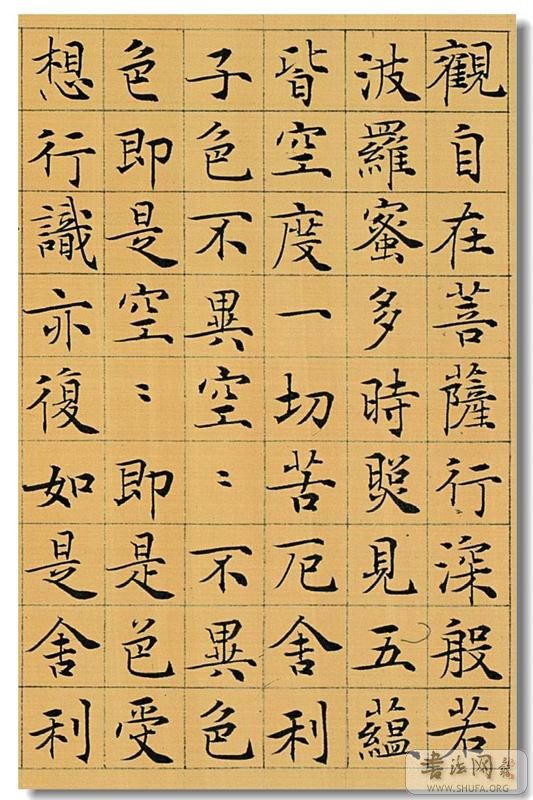 觀自在菩薩行深般若
波羅蜜多時照見五蘊
皆空度一切苦厄舍利
子色不異空〻不異色
色即是空〻即是色受
想行識亦復如是舍利
书法网
WWW.SHUFA.ORG